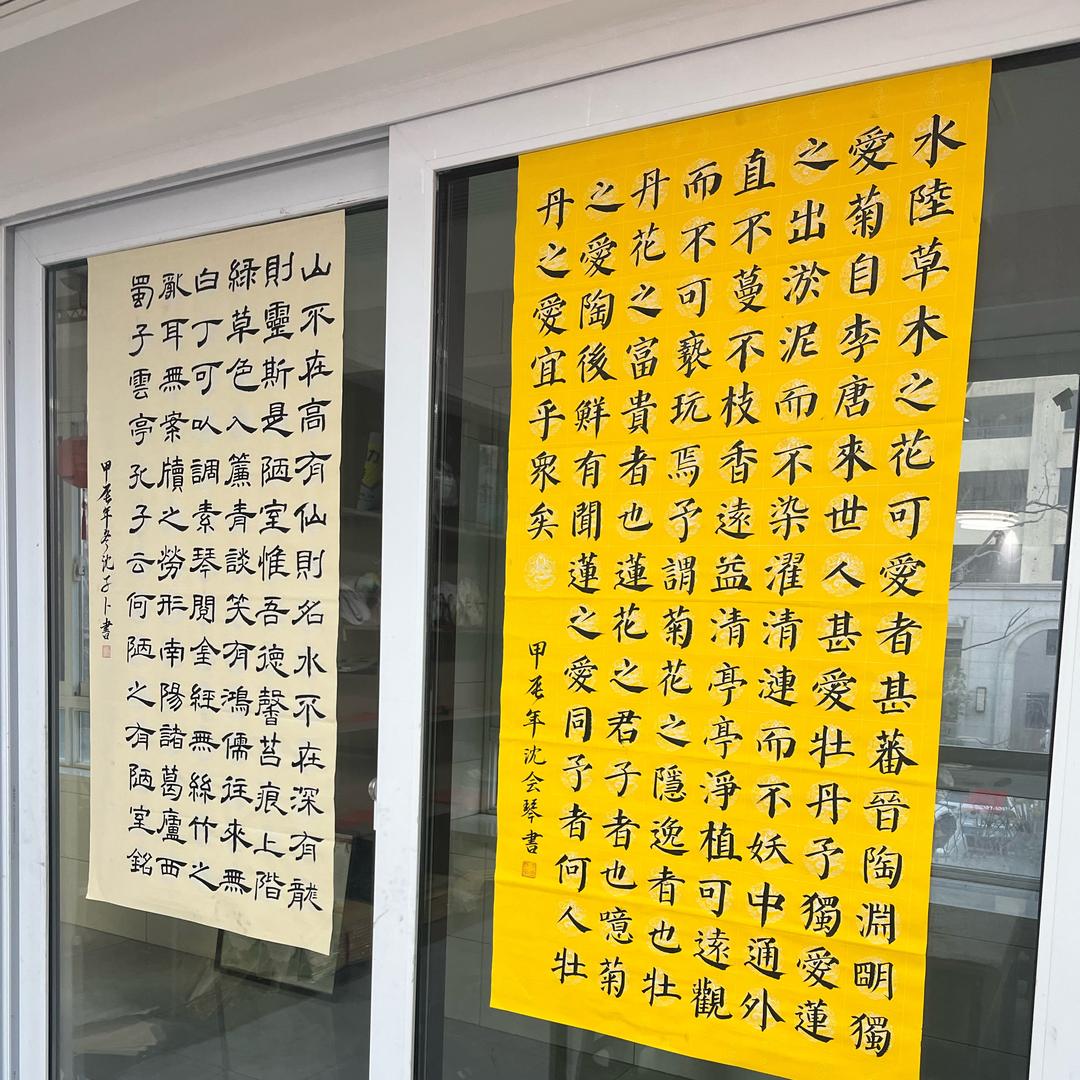 水陸草木之花可愛者甚蕃晉陶淵明獨
愛菊自李唐來世人甚愛牡丹予獨愛蓮
之出淤泥而不染濯清漣而不妖中通外
直不蔓不枝香遠益清亭亭淨植可遠觀
而不可褻玩焉予謂菊花之隱逸者也牡
丹花之富貴者也蓮花之君子者也噫菊
之愛陶後鮮有聞蓮之愛同予者何人牡
丹之愛宜乎衆矣
甲辰年沈会琴書
山不在高有仙則名水不在深有龍
則靈斯是陋室惟吾德馨苔痕上階
綠草色入簾青談笑有鴻儒往來無
白丁可以調素琴閱金經無絲竹之
亂耳無案牘之勞形南陽諸葛廬西
蜀子雲亭孔子云何陋之有陋室銘
甲辰年冬沈子卜書